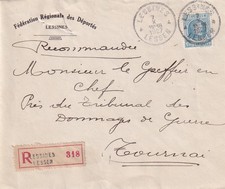 Fédération Régionale des Députés
LESSINES
Recommandée
LESSINES
LESSEN
Monsieur le Greffier en
Chef
Près du Tribunal des
Dommages de Guerre
Tournai
R LESSINES
LESSEN
318